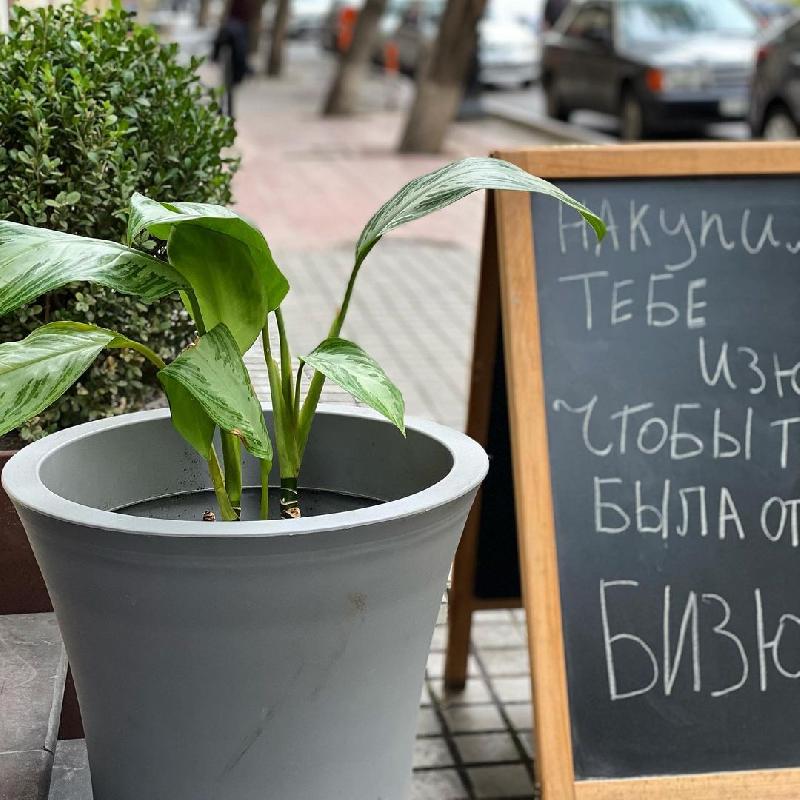 НАКУПИЛ
ТЕБЕ
ИЗЮ
ЧТОБЫ Т
БЫЛА ОТ
БИЗЮ